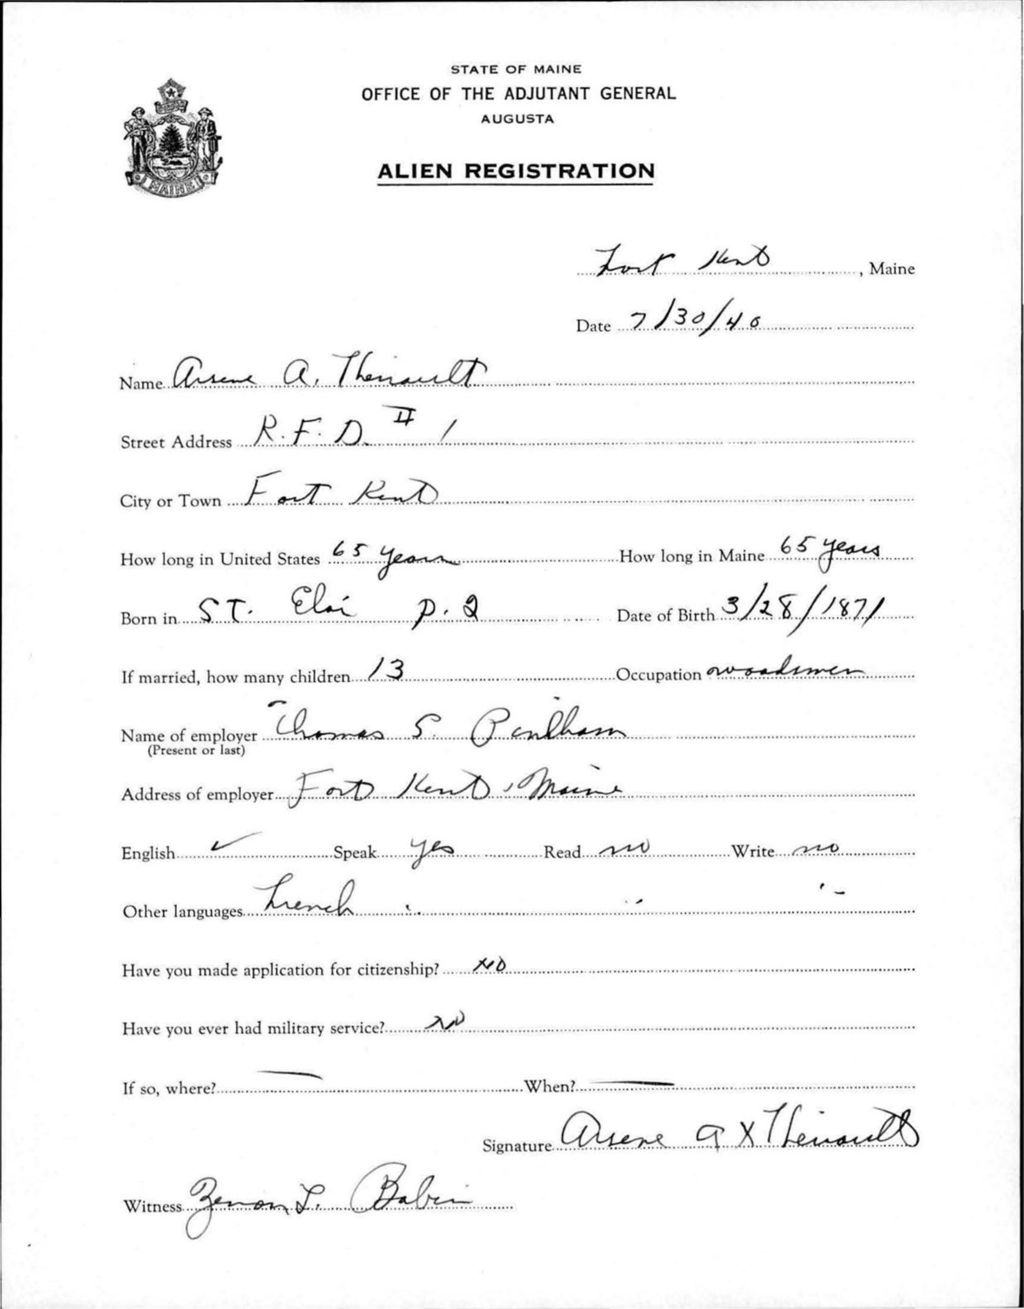 STATE OF MAINE
OFFICE OF THE ADJUTANT GENERAL
AUGUSTA
ALIEN REGISTRATION
MAINE
Fort Kent, Maine
Date 7/30/40
Name Arsene A. Theriault
Street Address R.F.D. # 1
City or Town Fort Kent
How long in United States 65 years How long in Maine 65 years
Born in ST. Eloi P.Q Date of Birth 3/28/1871
If married, how many children 13 Occupation woodsmen
Name of employer Thomas S.
(Present or last)
Address of employer Fort Kent, Maine
English ✓ Speak yes Read no Write no
Other languages French " " "
Have you made application for citizenship? NO
Have you ever had military service? NO
If so, where? — When? —
Signature Arsene A X Theriault
Witness Zenon L. Babin